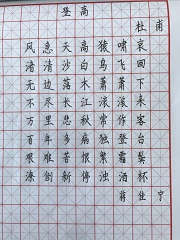 登高
杜甫
风急天高猿啸哀
渚清沙白鸟飞回
无边落木萧萧下
不尽长江滚滚来
万里悲秋常作客
百年多病独登台
艰难苦恨繁霜鬓
潦倒新停浊酒杯
蒋佳宁